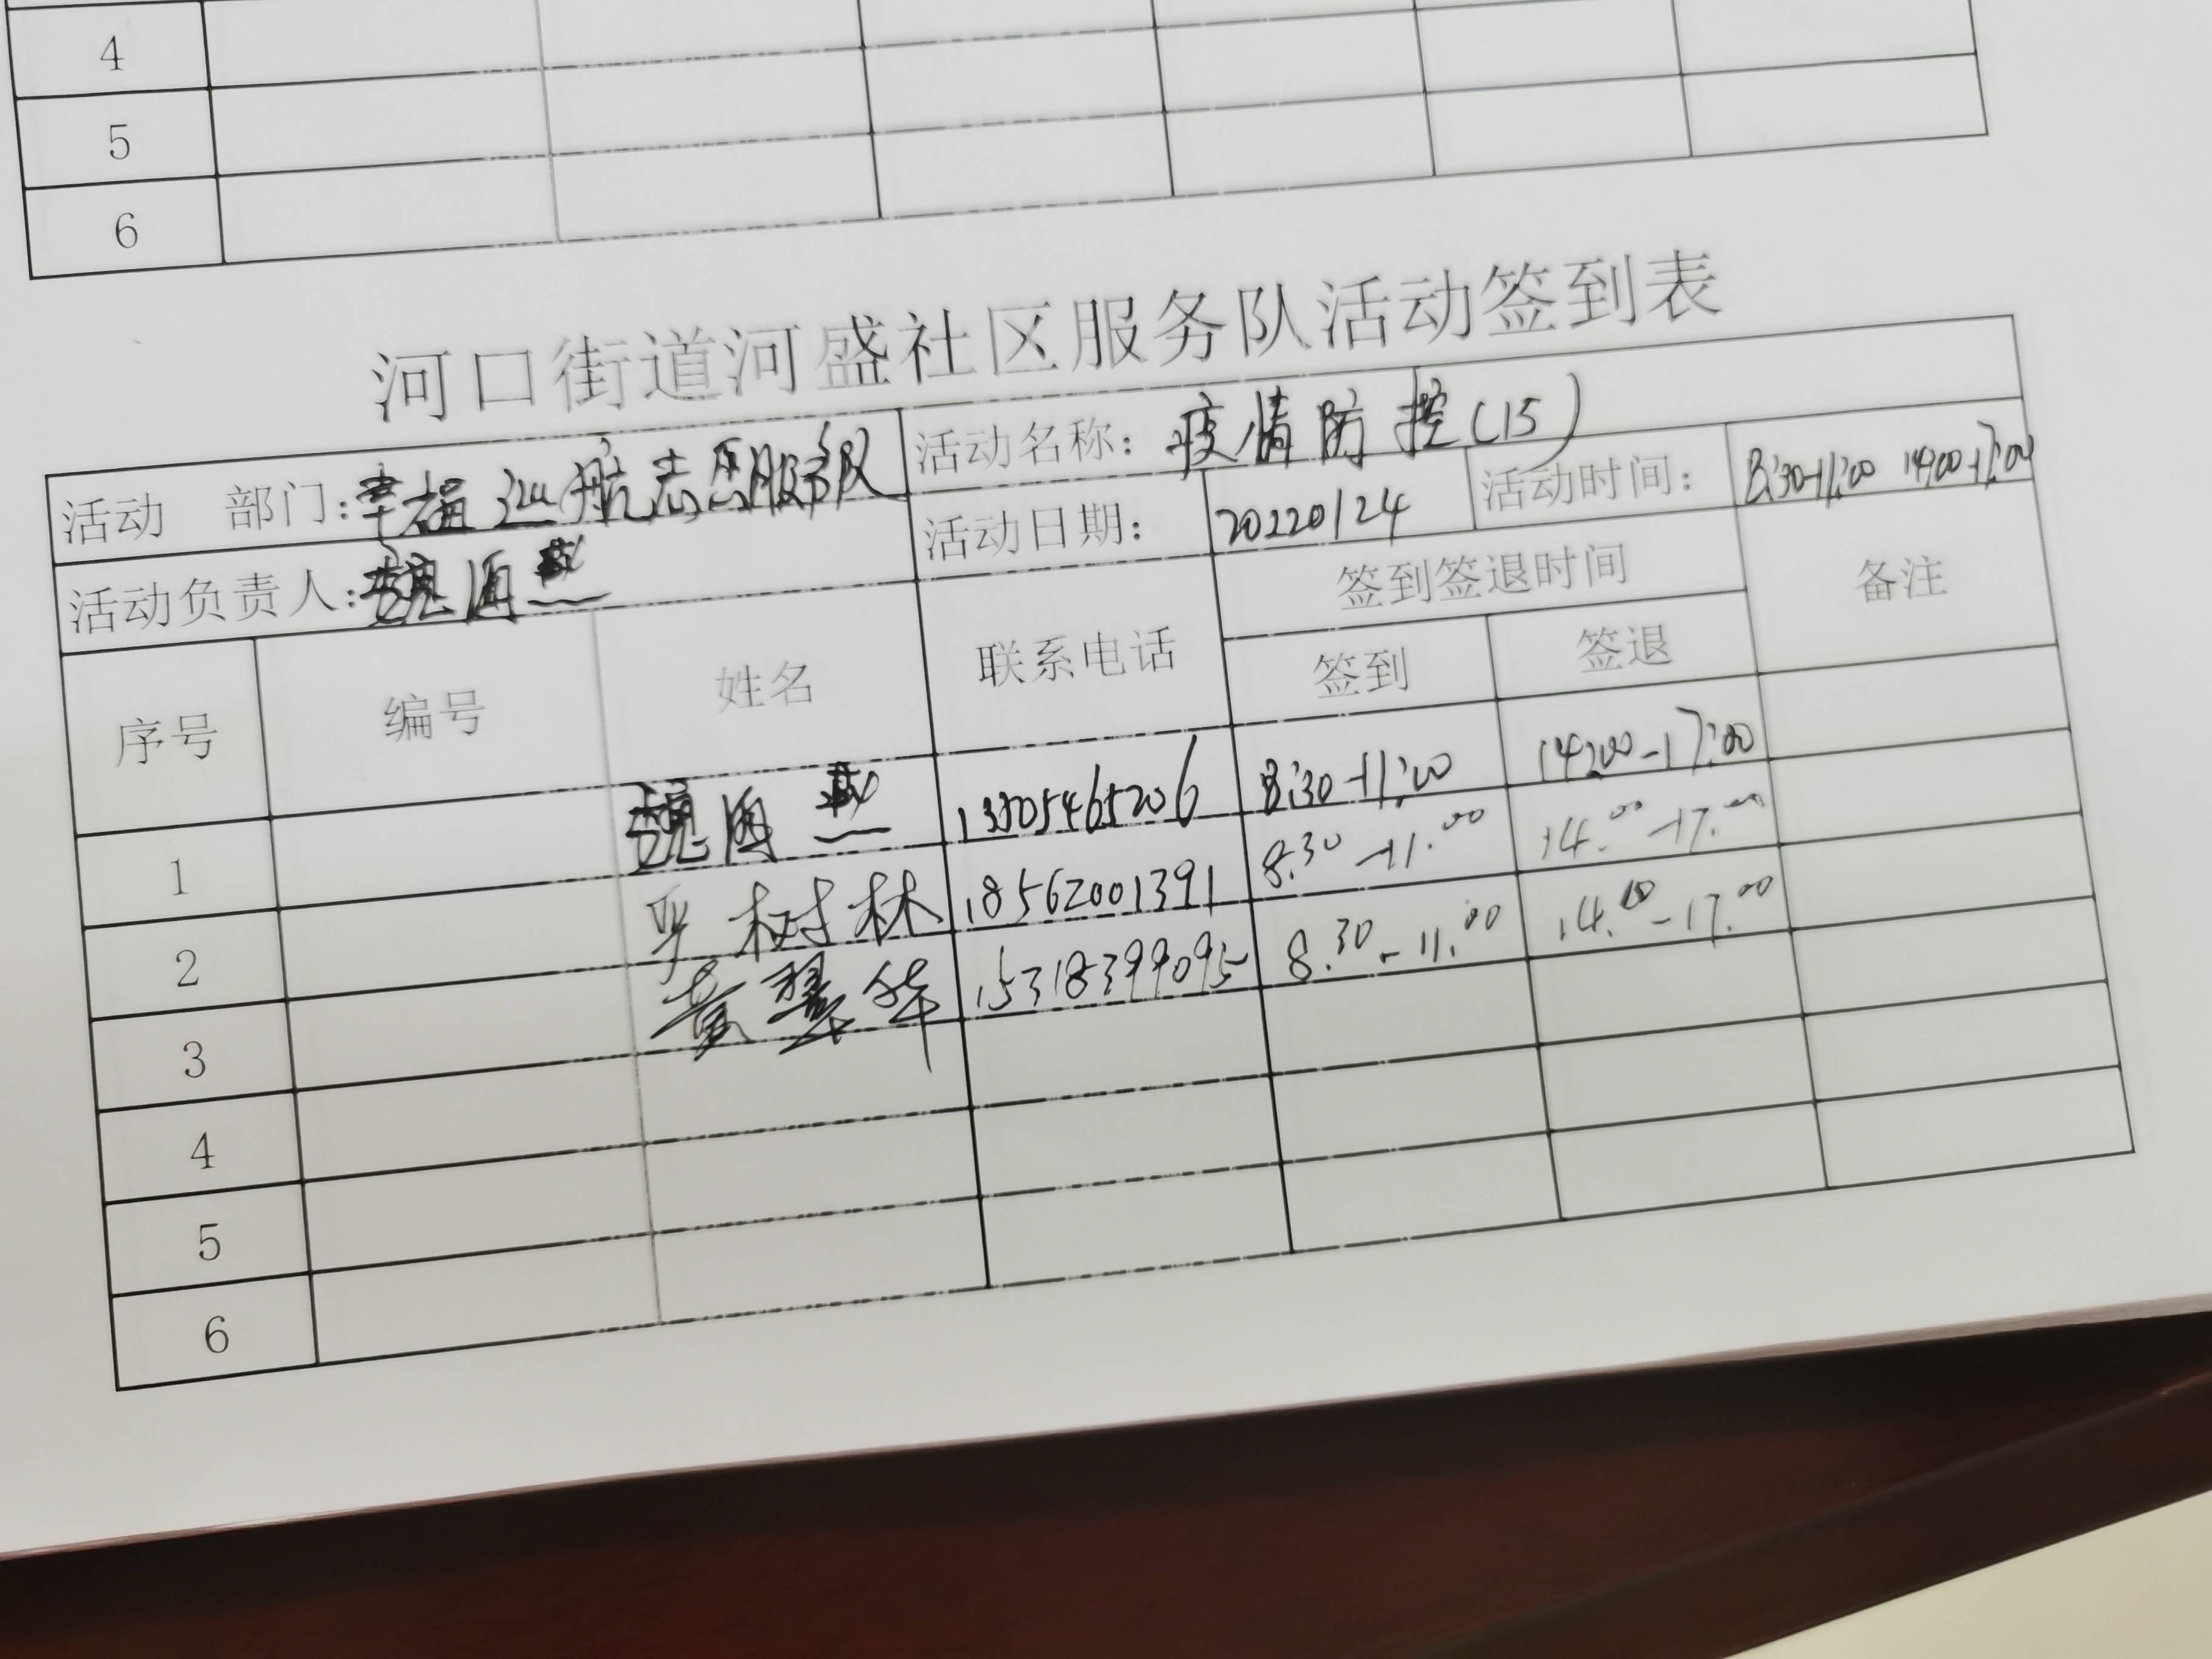 4
5
6
河口街道河盛社区服务队活动签到表
活动 部门:幸福巡航志愿服务队 活动名称: 疫情防控(15)
活动负责人:魏海燕 活动日期: 20220124 活动时间: 8:30-11:00 14:00-17:00
序号 编号 姓名 联系电话 签到签退时间 备注
签到 签退
1 魏海燕 13505465206 8:30-11:00 14:00-17:00
2 树林 18562001391 8.30-11.00 14.00-17.00
3 黄翠华 15318399095 8.30-11.00 14.00-17.00
4
5
6